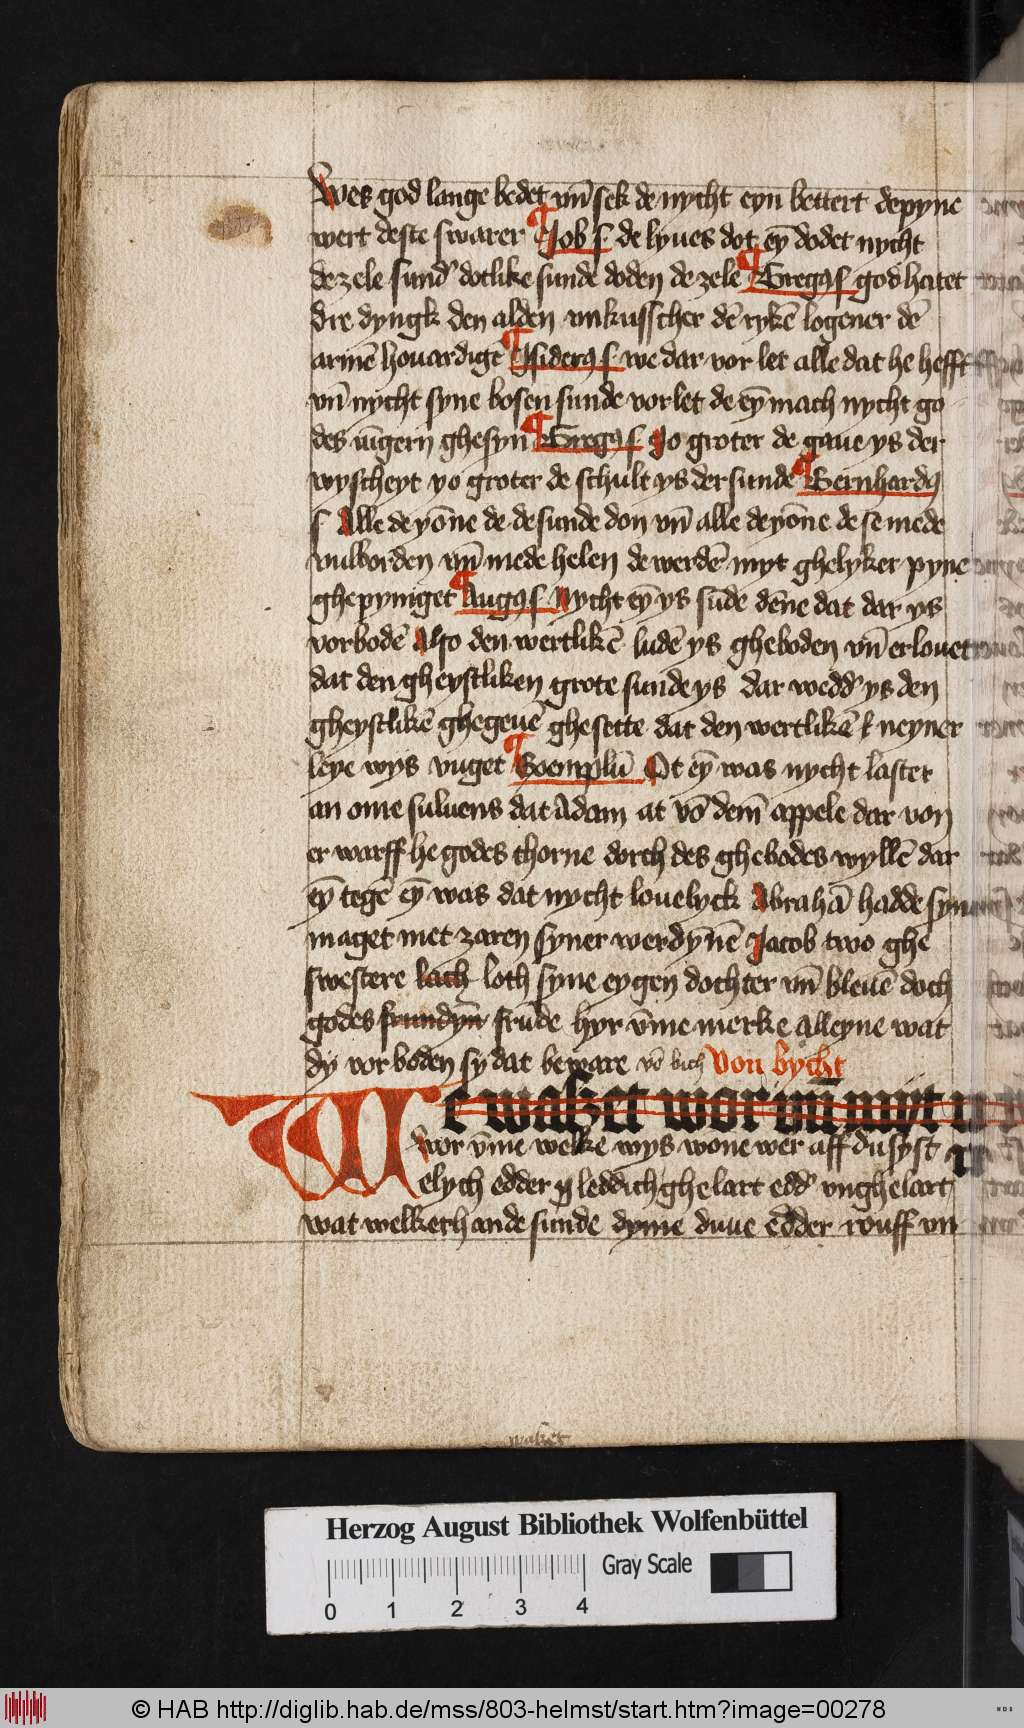 Wes god lange bedet vn̄ sek de nycht eyn bettert de pyne
wert deste swarer ¶ Job s de lyues dot eȳ dodet nycht
de zele sund' dotlike sunde doden de zele ¶ Gregꝯ s god hatet
dre dyngk den alden vnkusscher dē rykē logener dē
armē houardigē ¶ Ysiderꝯ s we dar vor let alle dat he hefft
vn̄ nycht syne bosen sunde vorlet de eȳ mach nycht go
des iūgern ghesyn ¶ Gregꝯ s Jo groter de gaue ys der
wyscheyt yo groter de schult ys der sunde ¶ Bernhardꝯ
s Alle de yōne de de sunde don vn̄ alle de yōne de se mede
vulborden vn̄ mede helen de werdē myt ghelyker pyne
ghepyniget ¶ Augꝯ s Nycht eȳ ys sūde dēne dat dar ys
vorbodē Also den wertlikē ludē ys gheboden vn̄ erlouet
dat den gheystliken grote sunde ys dar wedd' ys den
gheystlikē ghegeuē ghesette dat den wertlikē neyner
leye wys vuget ¶ Exemplū Ot eȳ was nycht laster
an ome suluens dat Adam at vō dem̄ appele dar von
er warff he godes thorne dorch des ghebodes wyllē dar
eȳ tegē eȳ was dat nycht louelyck Abrahā hadde syn
maget met zaren syner werdȳnē Jacob two ghe
swestere lach loth syne eygen dochter vn̄ bleuē doch
godes frundyn frūde hyr v̄me merke alleyne wat
dy vor boden sy dat beware vō bich Von bycht
We waket wor vm̄ myt
wor v̄me welke wys wone wer aff du syst
elych edder leddich ghelart edd' vnghelart
wat welkerhande sunde dyme duue edder rouff vn
waket
Herzog August Bibliothek Wolfenbüttel
Gray Scale
0 1 2 3 4
© HAB http://diglib.hab.de/mss/803-helmst/start.htm?image=00278